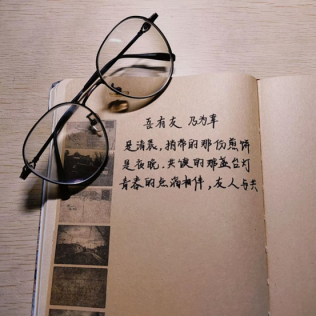 吾有友 乃为幸
是清晨,捎带的那份煎饼
是夜晚,共读的那盏台灯
青春的点滴相伴,友人与共